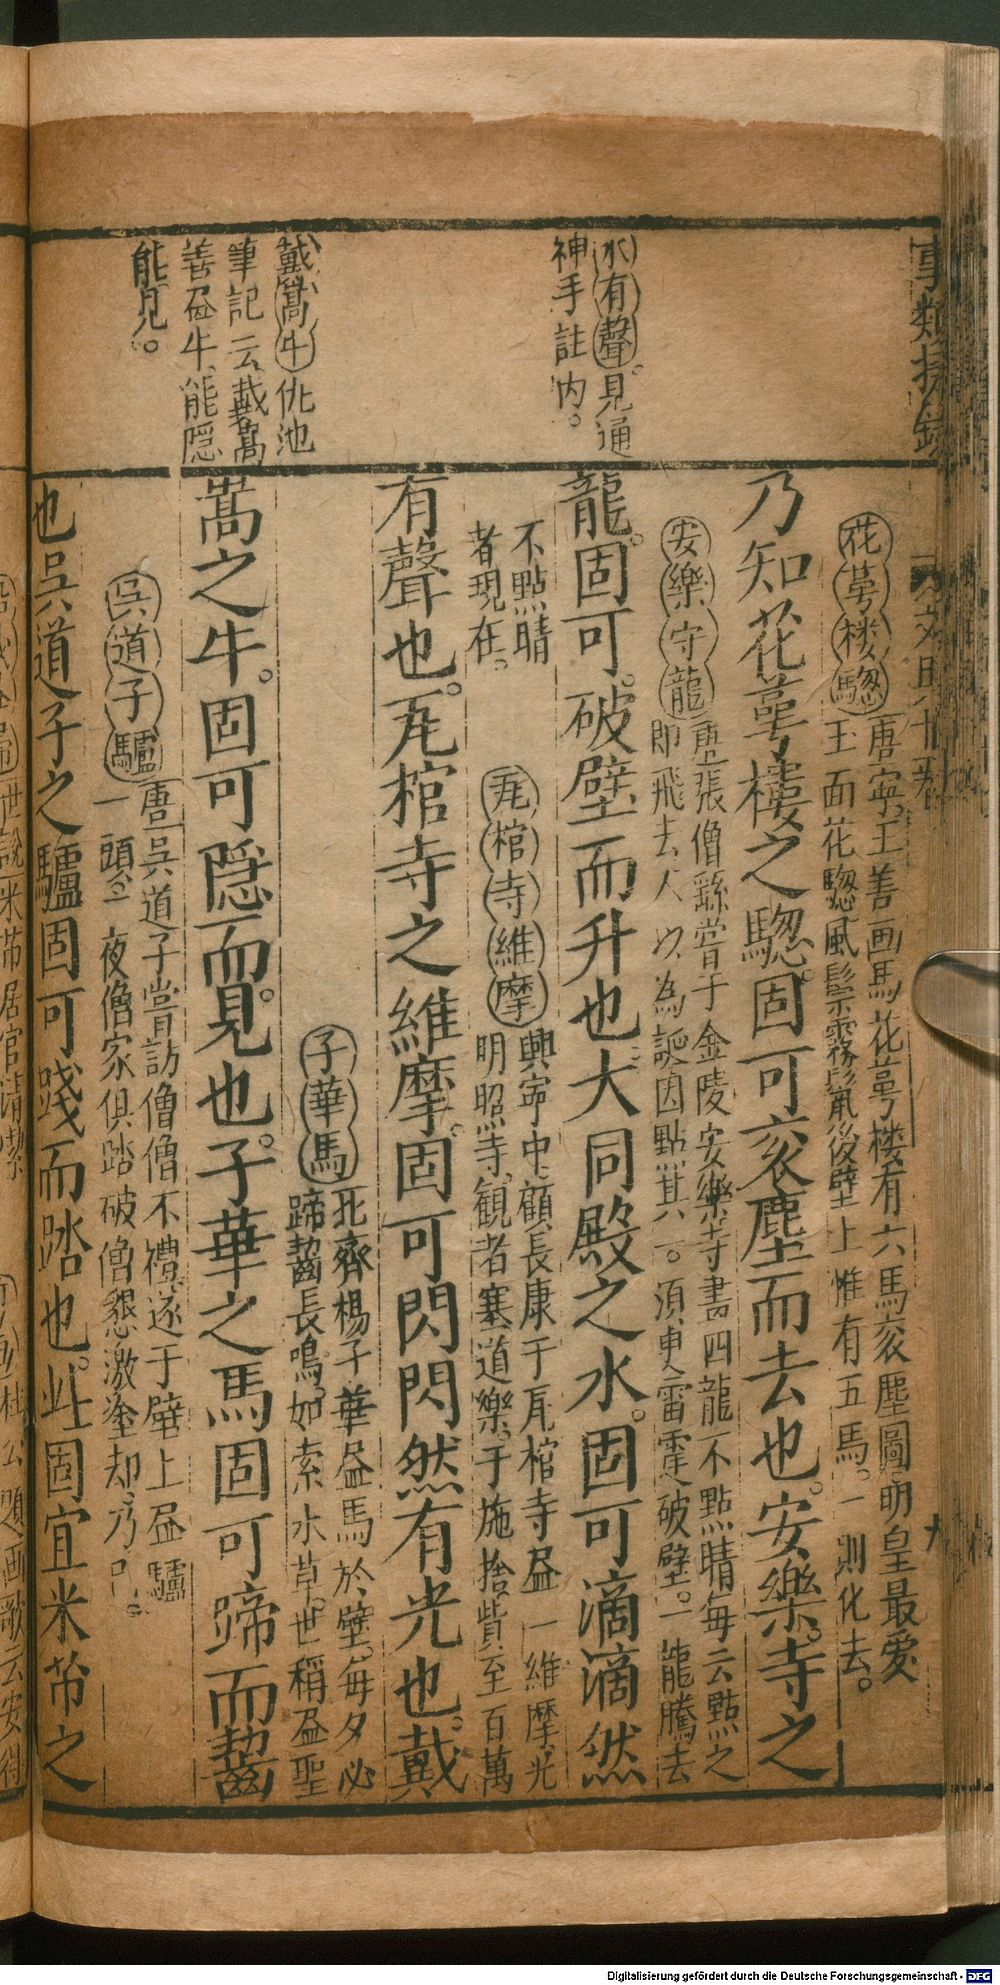 花萼楼驄
唐寧王善画馬花萼楼有六馬衮塵圖明皇最爱
玉面花驄風鬃霧鬣後壁上惟有五馬。一則化去。
乃知花萼樓之驄。固可衮塵而去也。安樂。寺之
安樂守龍
唐張僧繇嘗于金陵安樂寺畵四龍不點睛每云點之
即飛去人以為誕因點其一。須臾雷霆破壁。一龍騰去
不點睛
者現在。
水有聲。見通
神手註内。
龍。固可。破壁而升也。大同殿之水。固可滴滴然
有聲也。瓦棺寺之維摩。固可閃閃然有光也。戴
瓦棺寺維摩
興寧中顧長康于瓦棺寺画一維摩光
明照寺。観者塞道樂。于施捨貲至百萬
戴嵩牛仇池
筆記云戴嵩
善画牛能隠
能見。
嵩之牛。固可隠而見。也。子華之馬固可蹄而齧
子華馬
北齊楊子華画馬於壁。每夕必
蹄齧長鳴。如索水草。世稱画聖
吳道子驢
唐吳道子嘗訪僧僧不禮遂于壁上画驢
一頭一夜僧家俱踏破僧懇激塗却乃已。
也吳道子之驢固可踐而踏也。此固宜米芾之
世說米芾居官清潔
Digitalisierung gefördert durch die Deutsche Forschungsgemeinschaft - DFG